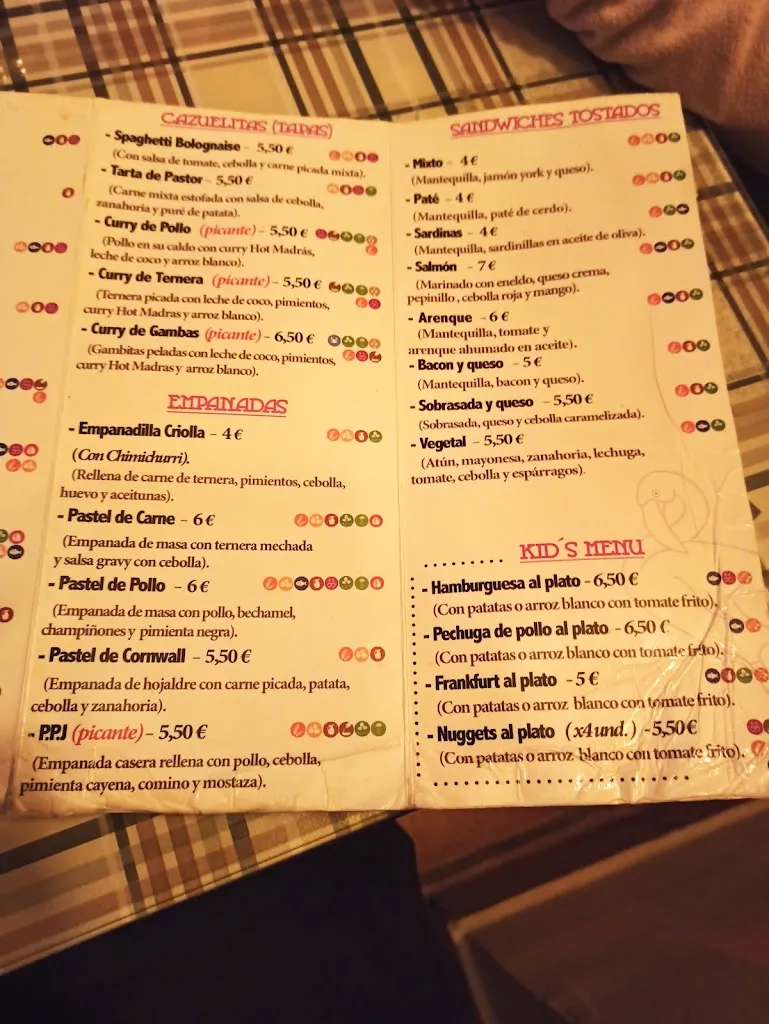 CAZUELITAS (TAPAS)
- Spaghetti Bolognaise - 5,50 €
(Con salsa de tomate, cebolla y carne picada mixta).
- Tarta de Pastor - 5,50 €
(Carne mixta estofada con salsa de cebolla,
zanahoria y puré de patata).
- Curry de Pollo (picante) - 5,50 €
(Pollo en su caldo con curry Hot Madrás,
leche de coco y arroz blanco).
- Curry de Ternera (picante) - 5,50 €
(Ternera picada con leche de coco, pimientos,
curry Hot Madras y arroz blanco).
- Curry de Gambas (picante) - 6,50 €
(Gambitas peladas con leche de coco, pimientos,
curry Hot Madras y arroz blanco).
EMPANADAS
- Empanadilla Criolla - 4 €
(Con Chimichurri).
(Rellena de carne de ternera, pimientos, cebolla,
huevo y aceitunas).
- Pastel de Carne - 6 €
(Empanada de masa con ternera mechada
y salsa gravy con cebolla).
- Pastel de Pollo - 6 €
(Empanada de masa con pollo, bechamel,
champiñones y pimienta negra).
- Pastel de Cornwall - 5,50 €
(Empanada de hojaldre con carne picada, patata,
cebolla y zanahoria).
- P.P.J (picante) - 5,50 €
(Empanada casera rellena con pollo, cebolla,
pimienta cayena, comino y mostaza).
SANDWICHES TOSTADOS
- Mixto - 4 €
(Mantequilla, jamón york y queso).
- Paté - 4 €
(Mantequilla, paté de cerdo).
- Sardinas - 4 €
(Mantequilla, sardinillas en aceite de oliva).
- Salmón - 7 €
(Marinado con eneldo, queso crema,
pepinillo , cebolla roja y mango).
- Arenque - 6 €
(Mantequilla, tomate y
arenque ahumado en aceite).
- Bacon y queso - 5 €
(Mantequilla, bacon y queso).
- Sobrasada y queso - 5,50 €
(Sobrasada, queso y cebolla caramelizada).
- Vegetal - 5,50 €
(Atún, mayonesa, zanahoria, lechuga,
tomate, cebolla y espárragos).
KID´S MENU
- Hamburguesa al plato - 6,50 €
(Con patatas o arroz blanco con tomate frito).
- Pechuga de pollo al plato - 6,50 €
(Con patatas o arroz blanco con tomate frito).
- Frankfurt al plato - 5 €
(Con patatas o arroz blanco con tomate frito).
- Nuggets al plato (x4 und.) - 5,50 €
(Con patatas o arroz blanco con tomate frito).